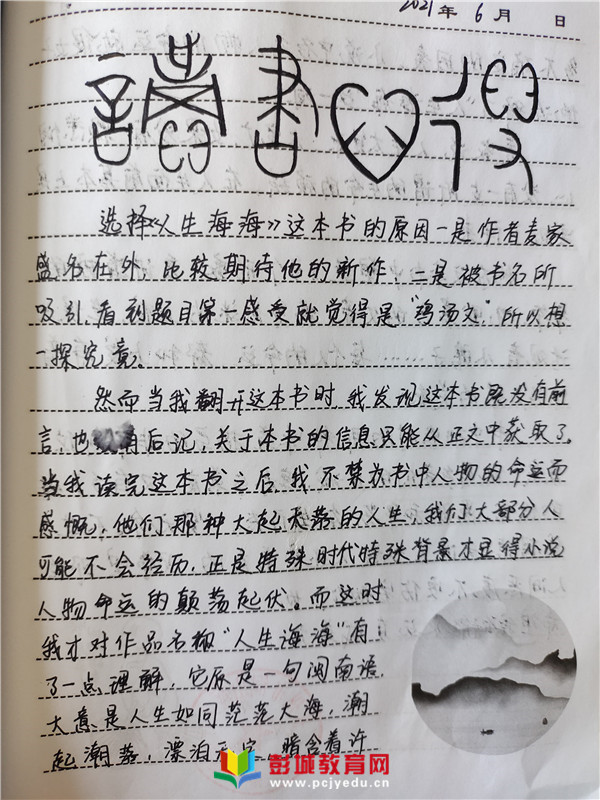 2021年 6月 日
讀書心得
选择《人生海海》这本书的原因一是作者麦家
盛名在外，比较期待他的新作，二是被书名所
吸引，看到题目第一感受就觉得是“鸡汤文”所以想
一探究竟。
然而当我翻开这本书时，我发现这本书既没有前
言，也没有后记，关于本书的信息只能从正文中获取了。
当我读完这本书之后，我不禁为书中人物的命运而
感慨，他们那种大起大落的人生，我们大部分人
可能不会经历，正是特殊时代特殊背景才显得小说
人物命运的颠荡起伏。而这时
我才对作品名称“人生海海”有
了一点理解，它原是一句闽南语，
大意是人生如同茫茫大海，潮
起潮落，漂泊不定，暗含着许
彭城教育网
www.pcjyedu.cn